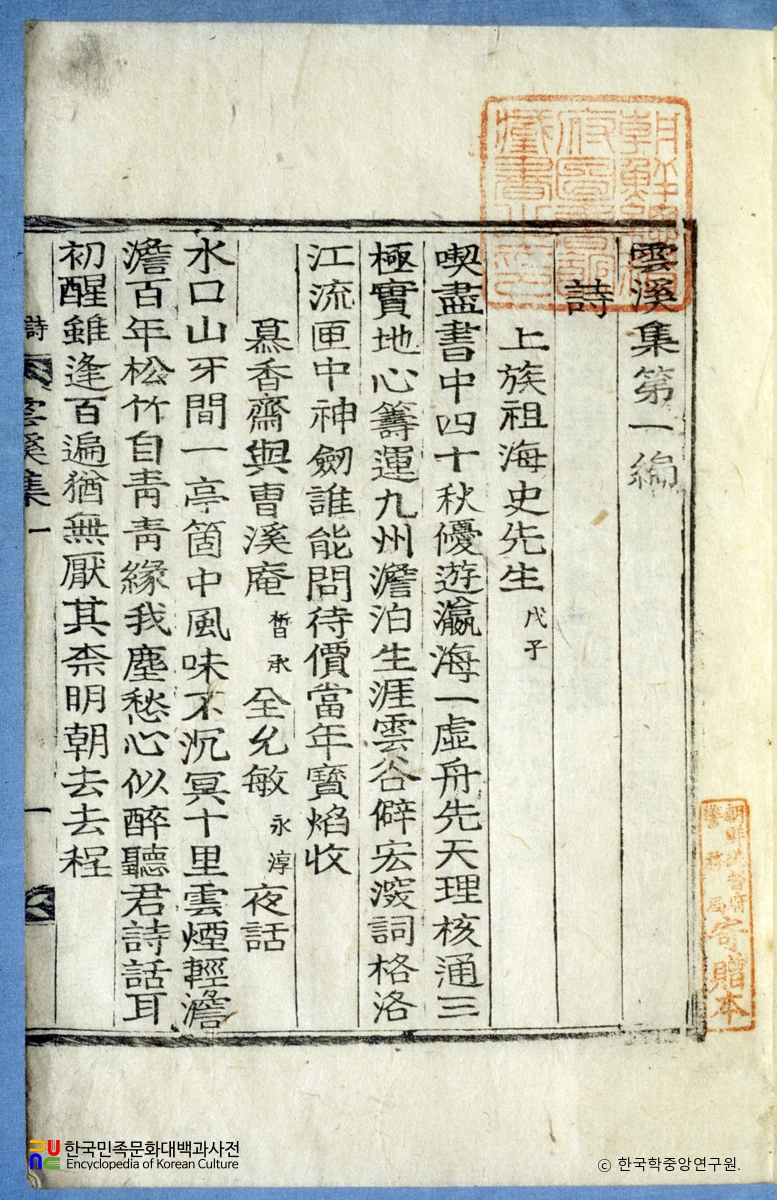 雲溪集第一編
詩
上族祖海史先生 戊子
喫盡書中四十秋優遊瀛海一虛舟先天理核通三
極實地心籌運九州澹泊生涯雲谷僻宏深詞格洛
江流匣中神劒誰能問待價當年寶焰收
慕香齋與曺溪庵 晳承 全允敏 永淳 夜話
水口山牙間一亭箇中風味不沉冥十里雲煙輕澹
澹百年松竹自靑靑緣我塵愁心似醉聽君詩話耳
初醒雖逢百遍猶無厭其柰明朝去去程
詩 雲溪集 一 一
朝鮮總督府圖書館藏書之印
朝鮮總督府
警務局
寄贈本
한국민족문화대백과사전
Encyclopedia of Korean Culture
ⓒ 한국학중앙연구원.